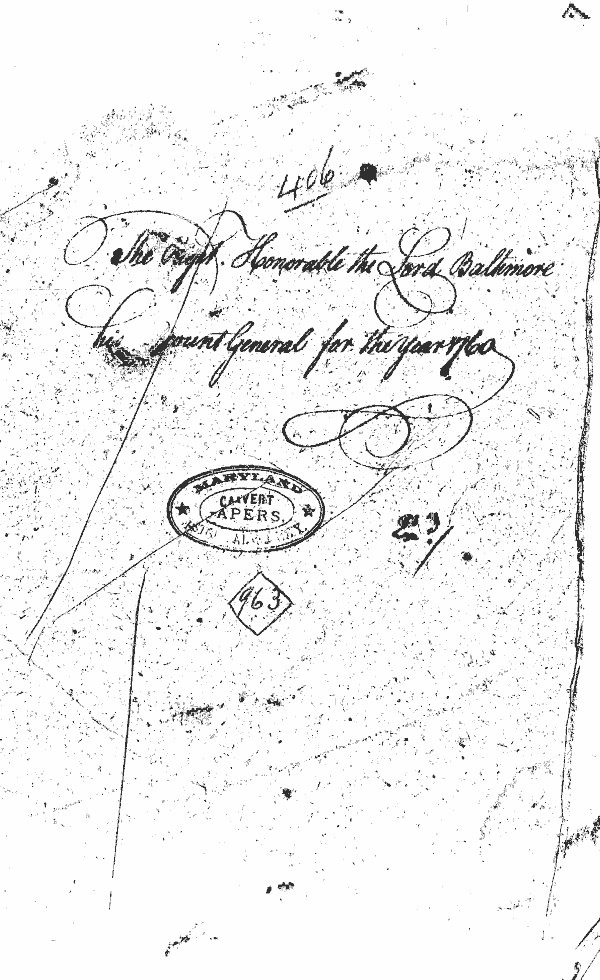 406
The Right Honorable the Lord Baltimore
his  General for the Year 1760
MARYLAND
CALVERT
PAPERS
23
963